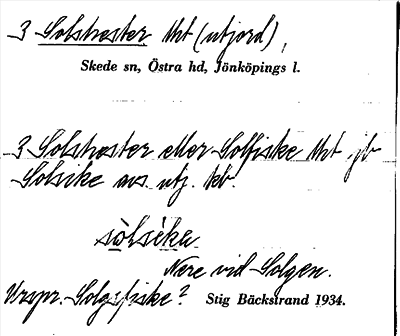 3 Solstraster Uht (utjord),
Skede sn, Östra hd, Jönköpings l.
3 Solstraster eller Solfiske Uht jb
Solsike avs. utj. kb.
sòlsika
Nere vid Solgen.
Urspr. Solgafiske? Stig Bäckstrand 1934.